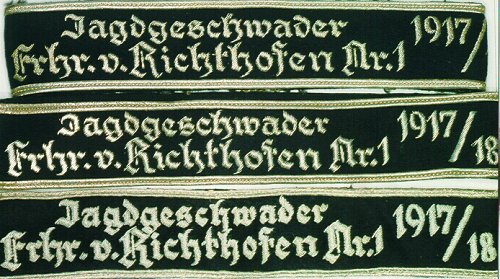 Jagdgeschwader 1917/
Frhr. v. Richthofen Nr. 1
Jagdgeschwader 1917/18
Frhr. v. Richthofen Nr. 1
Jagdgeschwader 1917/18
Frhr. v. Richthofen Nr. 1